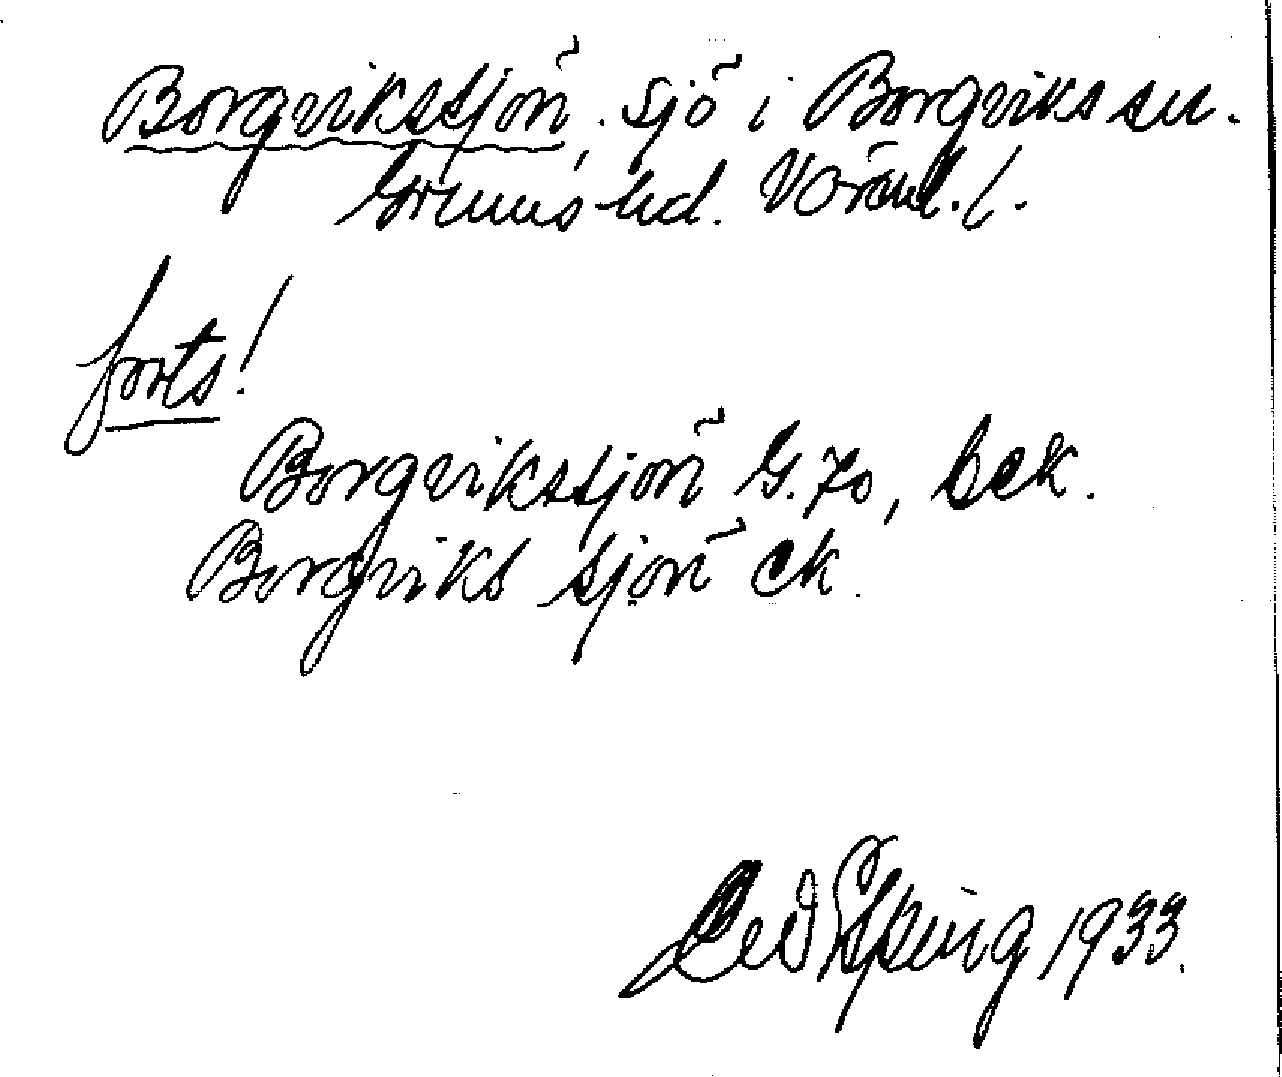 Borgvikssjön, sjö i Borgviks sn.
Grums hd. Värml. l.
forts!
Borgvikssjön G. 70, bek.
Borgviks sjön ek.
1933.